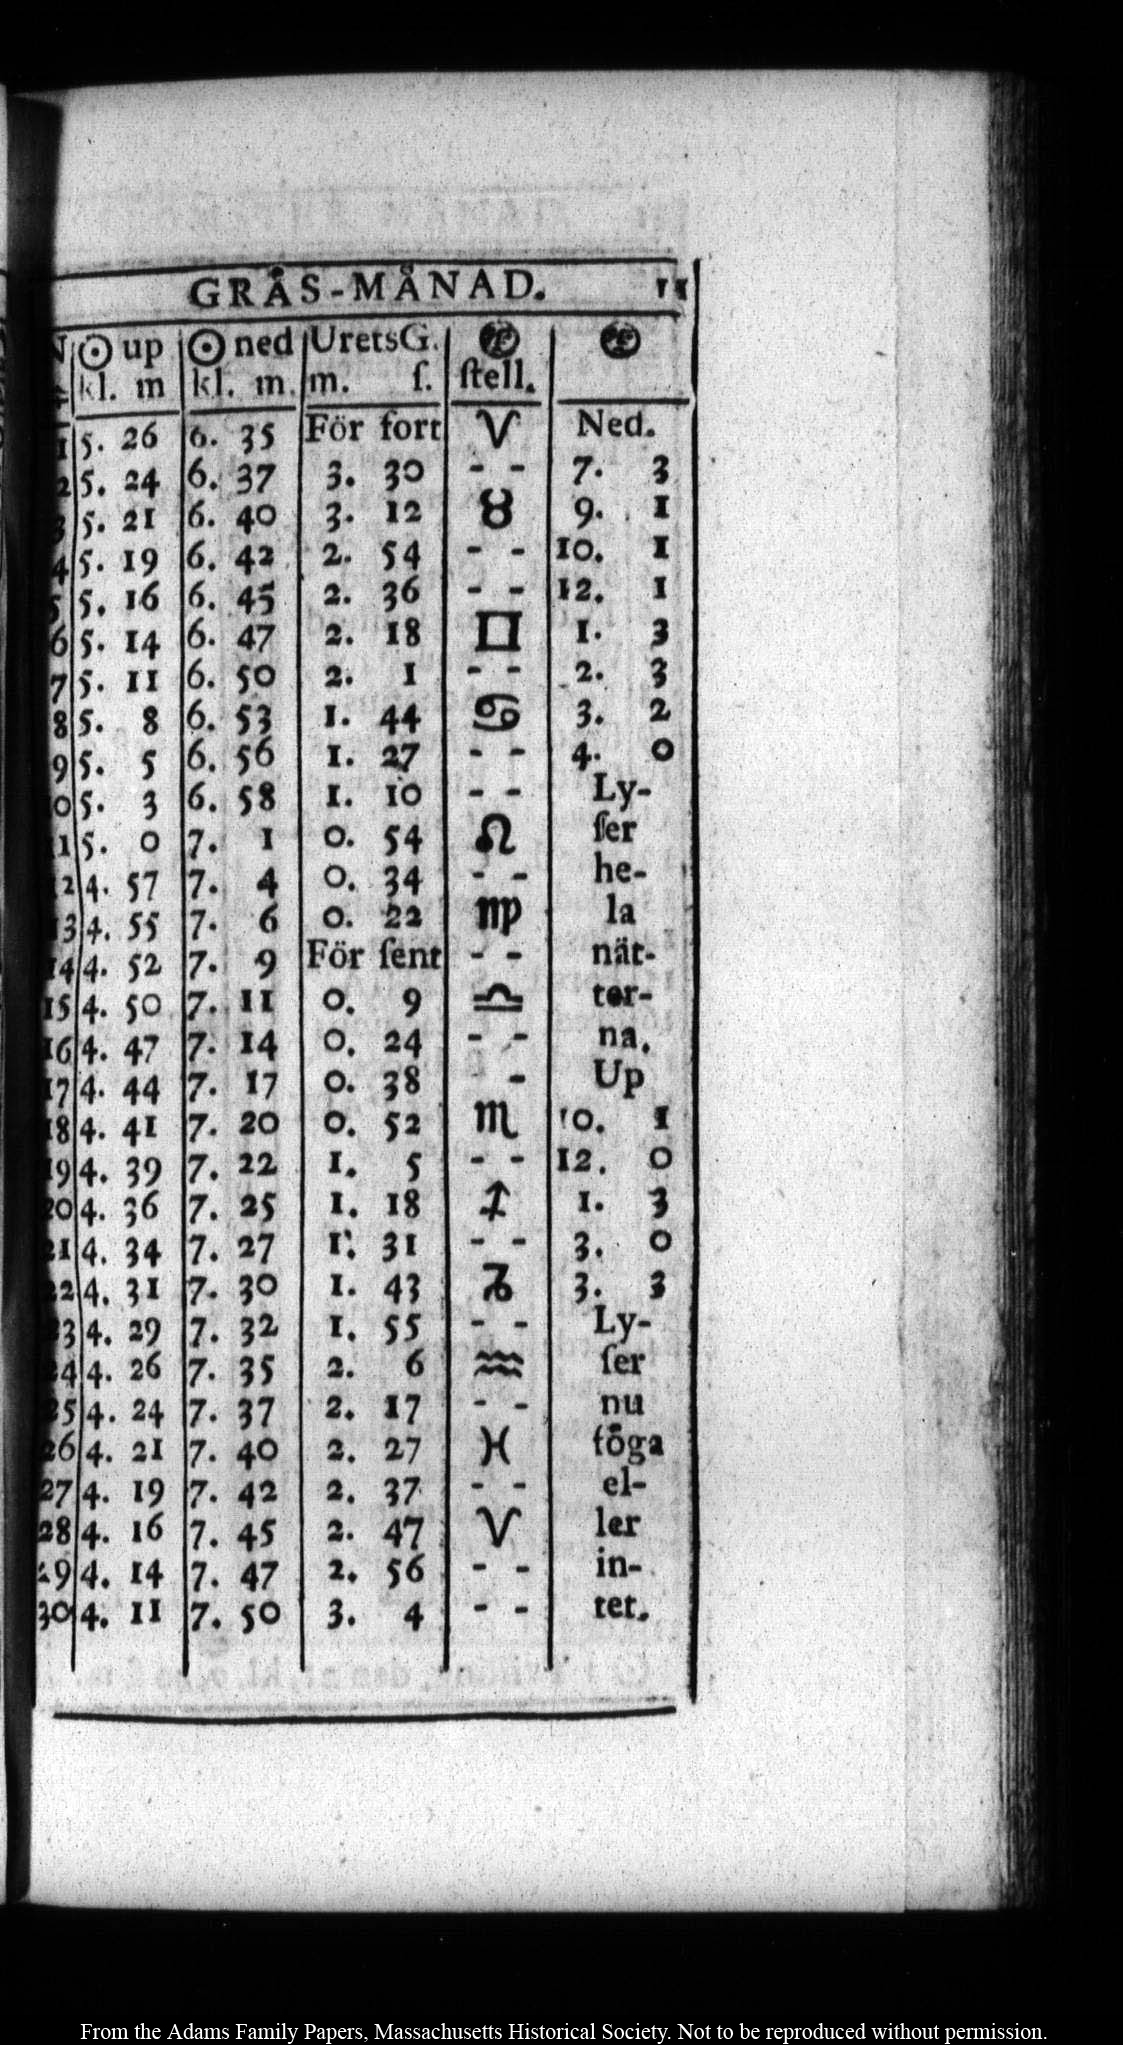 GRÅS-MÅNAD. 11
☉ up ☉ ned UretsG.
kl. m kl. m. m. ſ. ſtell.
1 5. 26 6. 35 För fort ♈ Ned.
2 5. 24 6. 37 3. 30 - - 7. 3
3 5. 21 6. 40 3. 12 ♉ 9. 1
4 5. 19 6. 42 2. 54 - - 10. 1
5 5. 16 6. 45 2. 36 - - 12. 1
6 5. 14 6. 47 2. 18 ♊ 1. 3
7 5. 11 6. 50 2. 1 - - 2. 3
8 5. 8 6. 53 1. 44 ♋ 3. 2
9 5. 5 6. 56 1. 27 - - 4. 0
10 5. 3 6. 58 1. 10 - - Ly-
11 5. 0 7. 1 0. 54 ♌ ſer
12 4. 57 7. 4 0. 34 - - he-
13 4. 55 7. 6 0. 22 ♍ la
14 4. 52 7. 9 För ſent - - nät-
15 4. 50 7. 11 0. 9 ♎ ter-
16 4. 47 7. 14 0. 24 - - na.
17 4. 44 7. 17 0. 38 - Up
18 4. 41 7. 20 0. 52 ♏ 10. 1
19 4. 39 7. 22 1. 5 - - 12. 0
20 4. 36 7. 25 1. 18 ♐ 1. 3
21 4. 34 7. 27 1. 31 - - 3. 0
22 4. 31 7. 30 1. 43 ♑ 3. 3
23 4. 29 7. 32 1. 55 - - Ly-
24 4. 26 7. 35 2. 6 ♒ ſer
25 4. 24 7. 37 2. 17 - - nu
26 4. 21 7. 40 2. 27 ♓ föga
27 4. 19 7. 42 2. 37 - - el-
28 4. 16 7. 45 2. 47 ♈ ler
29 4. 14 7. 47 2. 56 - - in-
30 4. 11 7. 50 3. 4 - - tet.
From the Adams Family Papers, Massachusetts Historical Society. Not to be reproduced without permission.